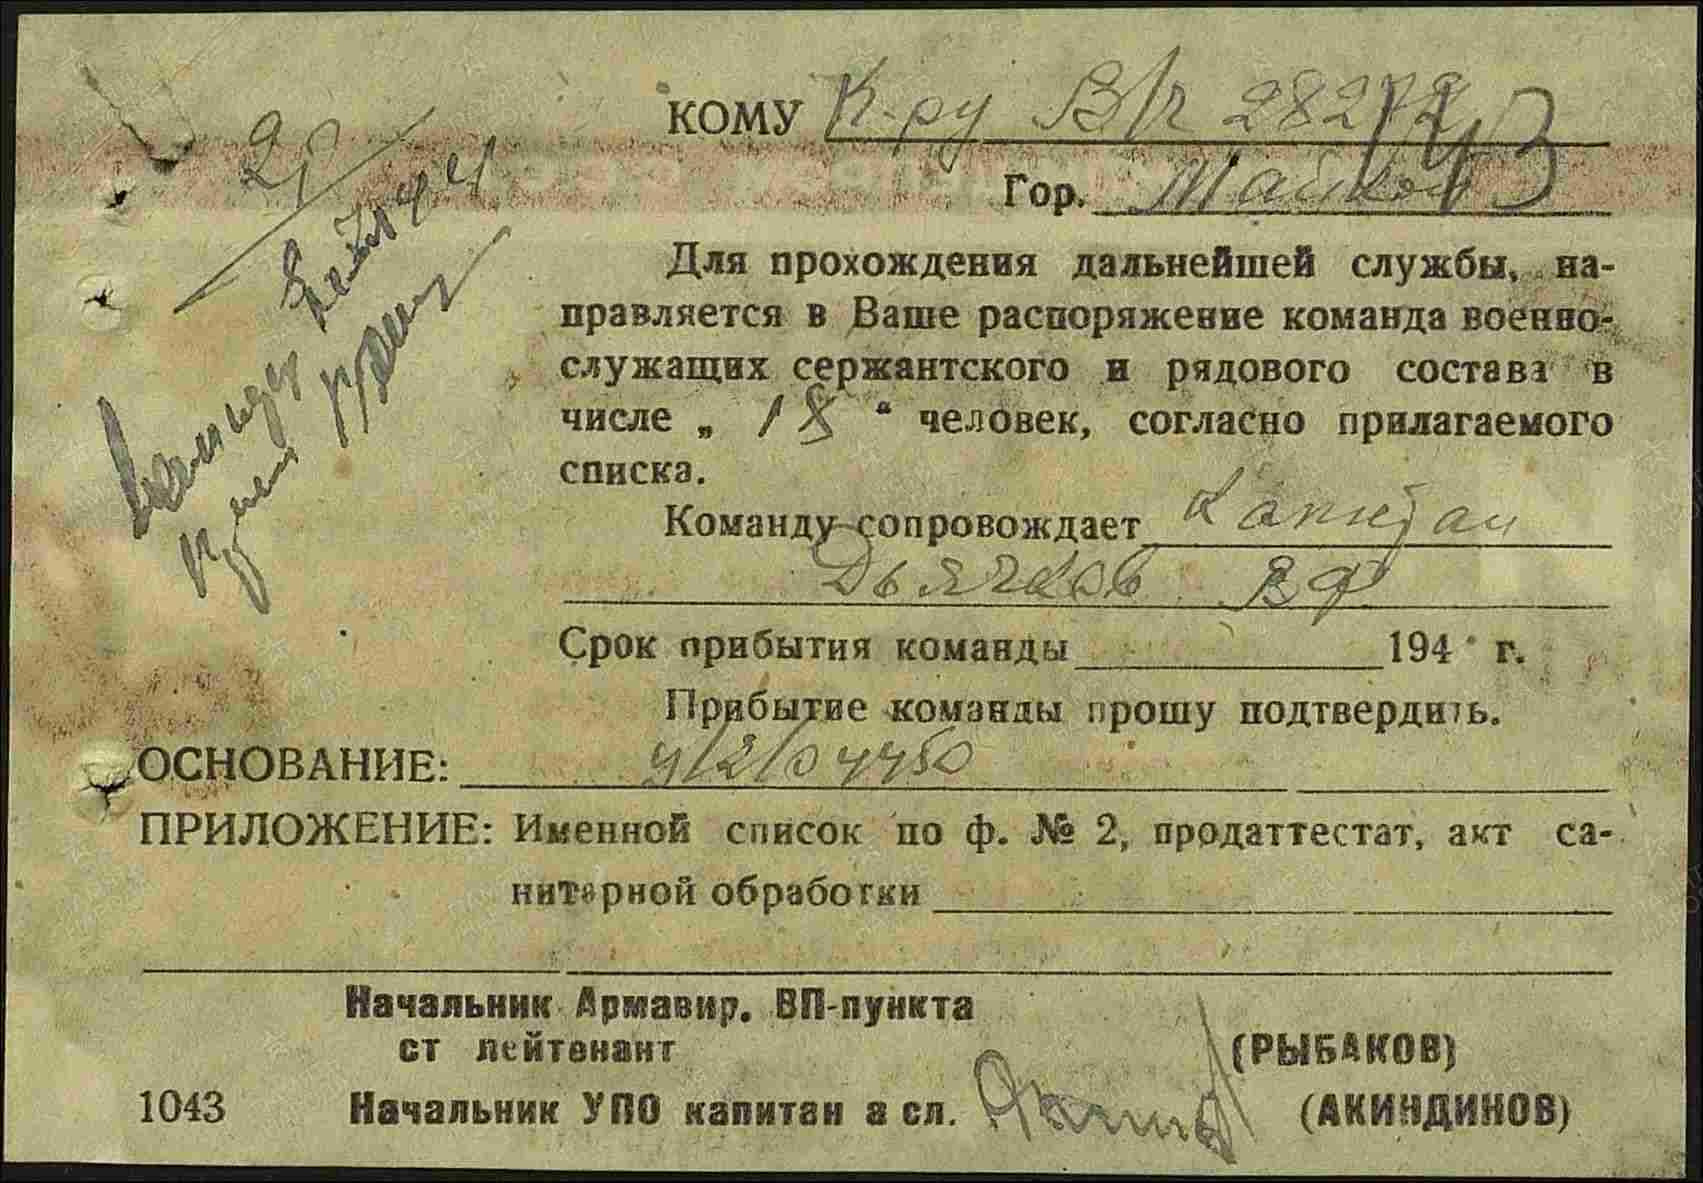 КОМУ К-ру В/ч 28272
143
Гор. Майкоп
Для прохождения дальнейшей службы, на-
правляется в Ваше распоряжение команда военно-
служащих сержантского и рядового состава в
числе „ 18 “ человек, согласно прилагаемого
списка.
Команду сопровождает Капитан
Дьячков ВФ
Срок прибытия команды 194 г.
Прибытие команды прошу подтвердить.
ОСНОВАНИЕ:
ПРИЛОЖЕНИЕ: Именной список по ф. № 2, продаттестат, акт са-
нитарной обработки
Начальник Армавир. ВП-пункта
ст лейтенант (РЫБАКОВ)
1043 Начальник УПО капитан а сл. (АКИНДИНОВ)